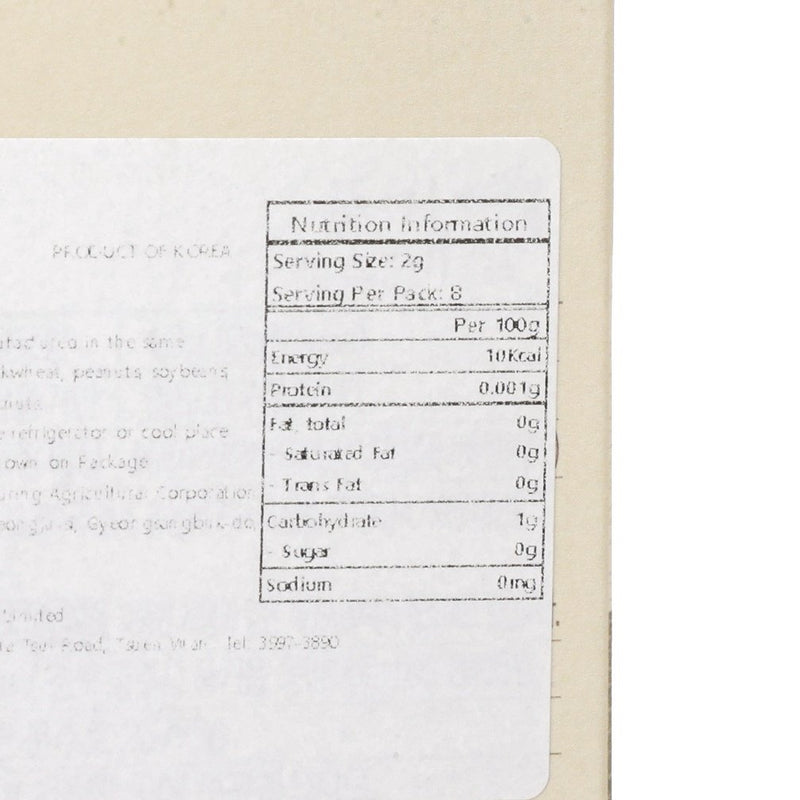 PRODUCT OF KOREA
in the same
peanuts, soybeans
refrigerator or cool place
own on Package
uring Agricultural Corporation
Gyeongsangbuk-do,
Limited
Road, Tsuen Wan Tel: 3997-3890
Nutrition Information
Serving Size: 2g
Serving Per Pack: 8
Per 100g
Energy 10Kcal
Protein 0.001g
Fat, total 0g
- Saturated Fat 0g
- Trans Fat 0g
Carbohydrate 1g
- Sugar 0g
Sodium 0mg